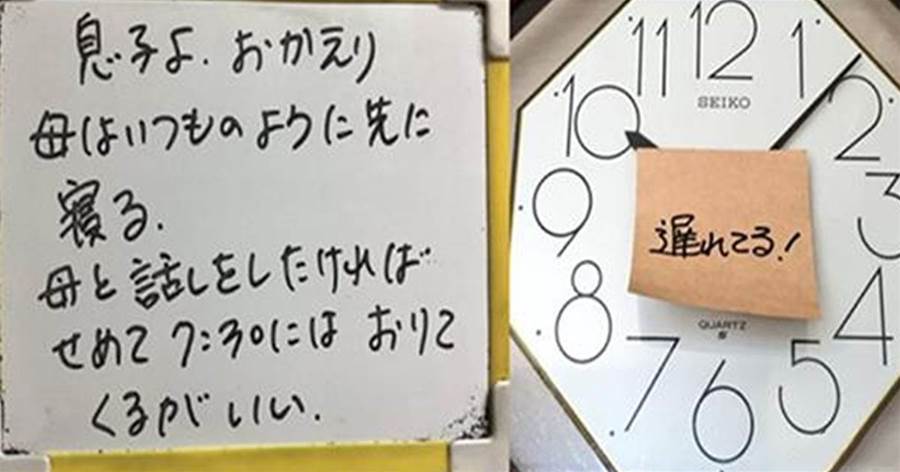 息子よ．おかえり
母はいつものように先に
寝る．
母と話しをしたければ
せめて 7:30には おりて
くるがいい．
12
11
1
SEIKO
10
2
9
3
遅れてる！
8
4
QUARTZ
7
5
6